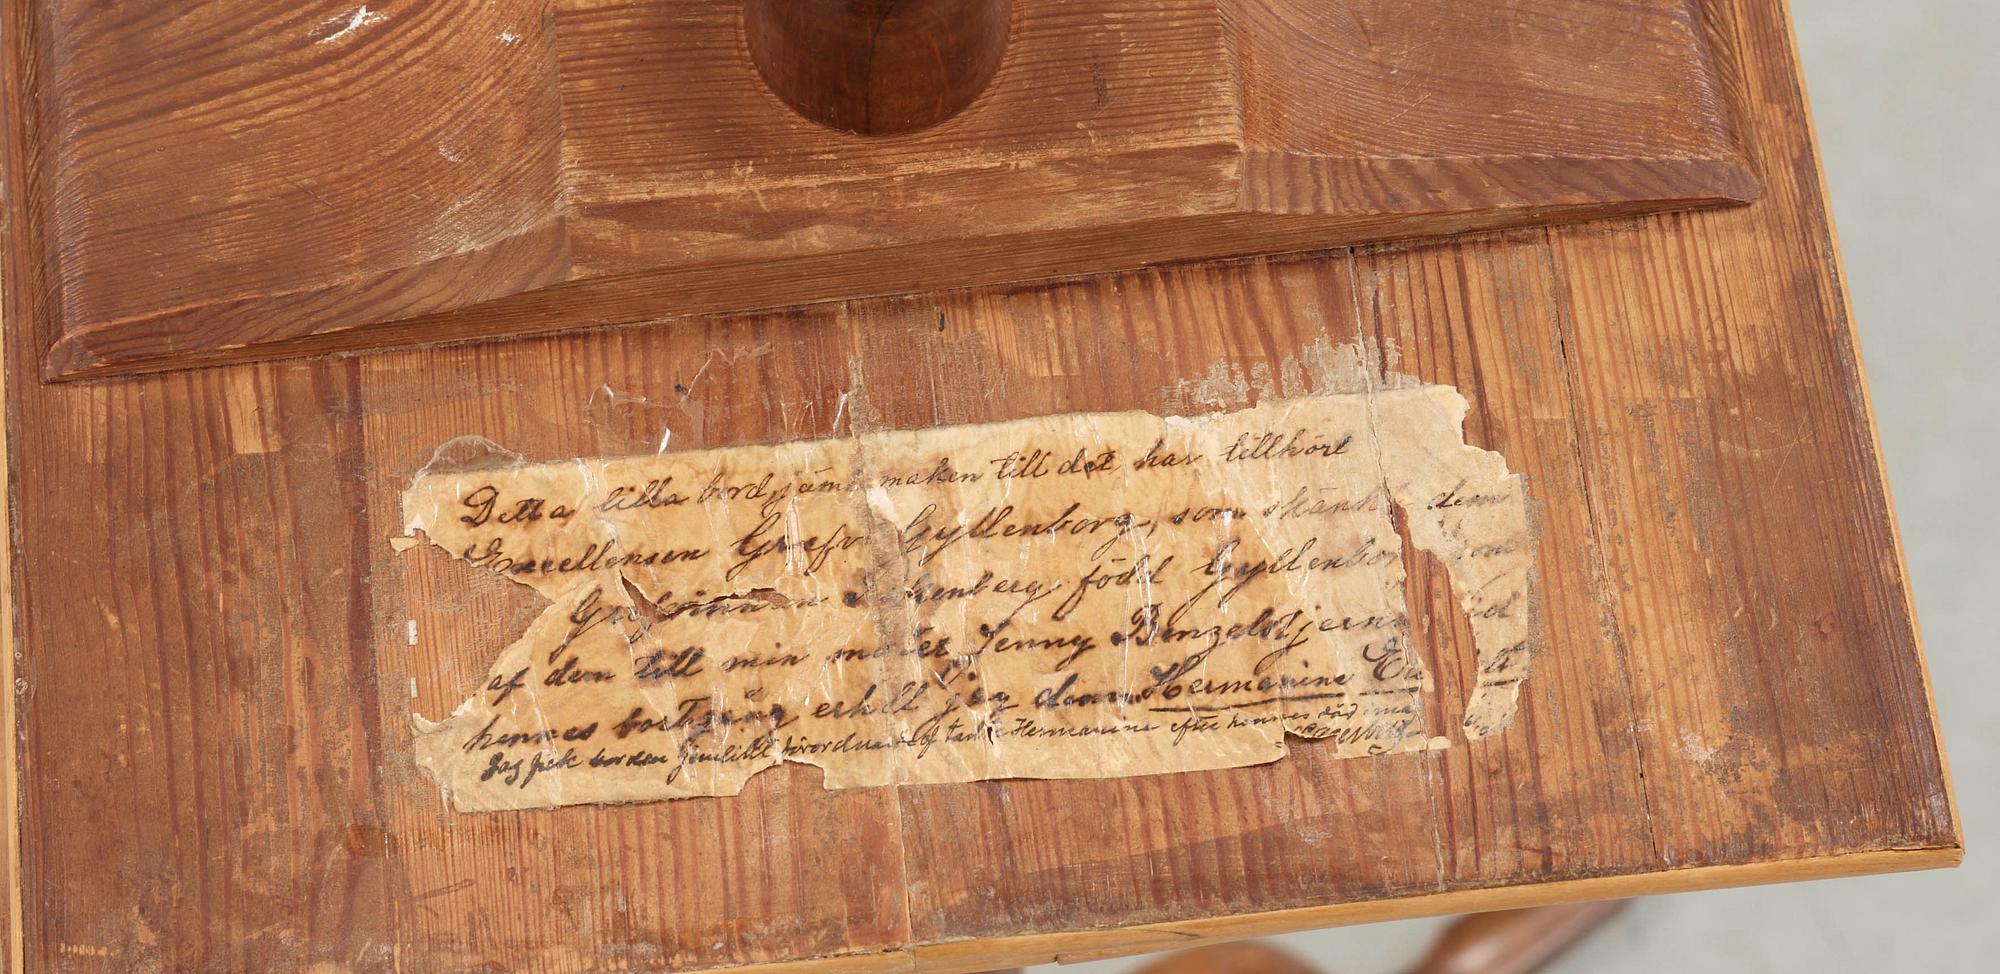 Detta lilla bord jämte maken till det, har tillhört
Excellensen Grefve Gyllenborg, som skänkt dem
Grefvinnan född Gyllenbor
af dem till min moder Jenny Benzelstjerna
hennes bortgång erhöll jag dem. Hermanine
Jag fick borden jemlikt förordnande af tante Hermanine efter hennes död